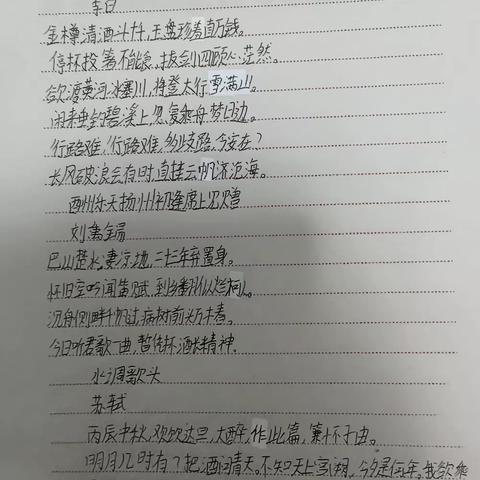 李白
金樽清酒斗十千,玉盘珍羞直万钱。
停杯投箸不能食,拔剑四顾心茫然。
欲渡黄河冰塞川,将登太行雪满山。
闲来垂钓碧溪上,忽复乘舟梦日边。
行路难,行路难,多歧路,今安在?
长风破浪会有时,直挂云帆济沧海。
酬乐天扬州初逢席上见赠
刘禹锡
巴山楚水凄凉地,二十三年弃置身。
怀旧空吟闻笛赋,到乡翻似烂柯人。
沉舟侧畔千帆过,病树前头万木春。
今日听君歌一曲,暂凭杯酒长精神.
水调歌头
苏轼
丙辰中秋,欢饮达旦,大醉,作此篇,兼怀子由。
明月几时有?把酒问青天。不知天上宫阙,今夕是何年。我欲乘